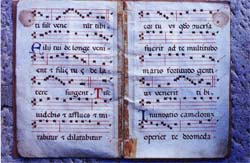 ti sut vene runt tibi
Filii tui de longe veni
ent et filie tue de la
tere surgent Tuc
videbis et afflues et mi
rabitur et dilatabitur
cor tuu
fuerit ad te multitudo
maris fortitudo genti
um venerit tibi
Inundatio camelorum
operiet te dromeda